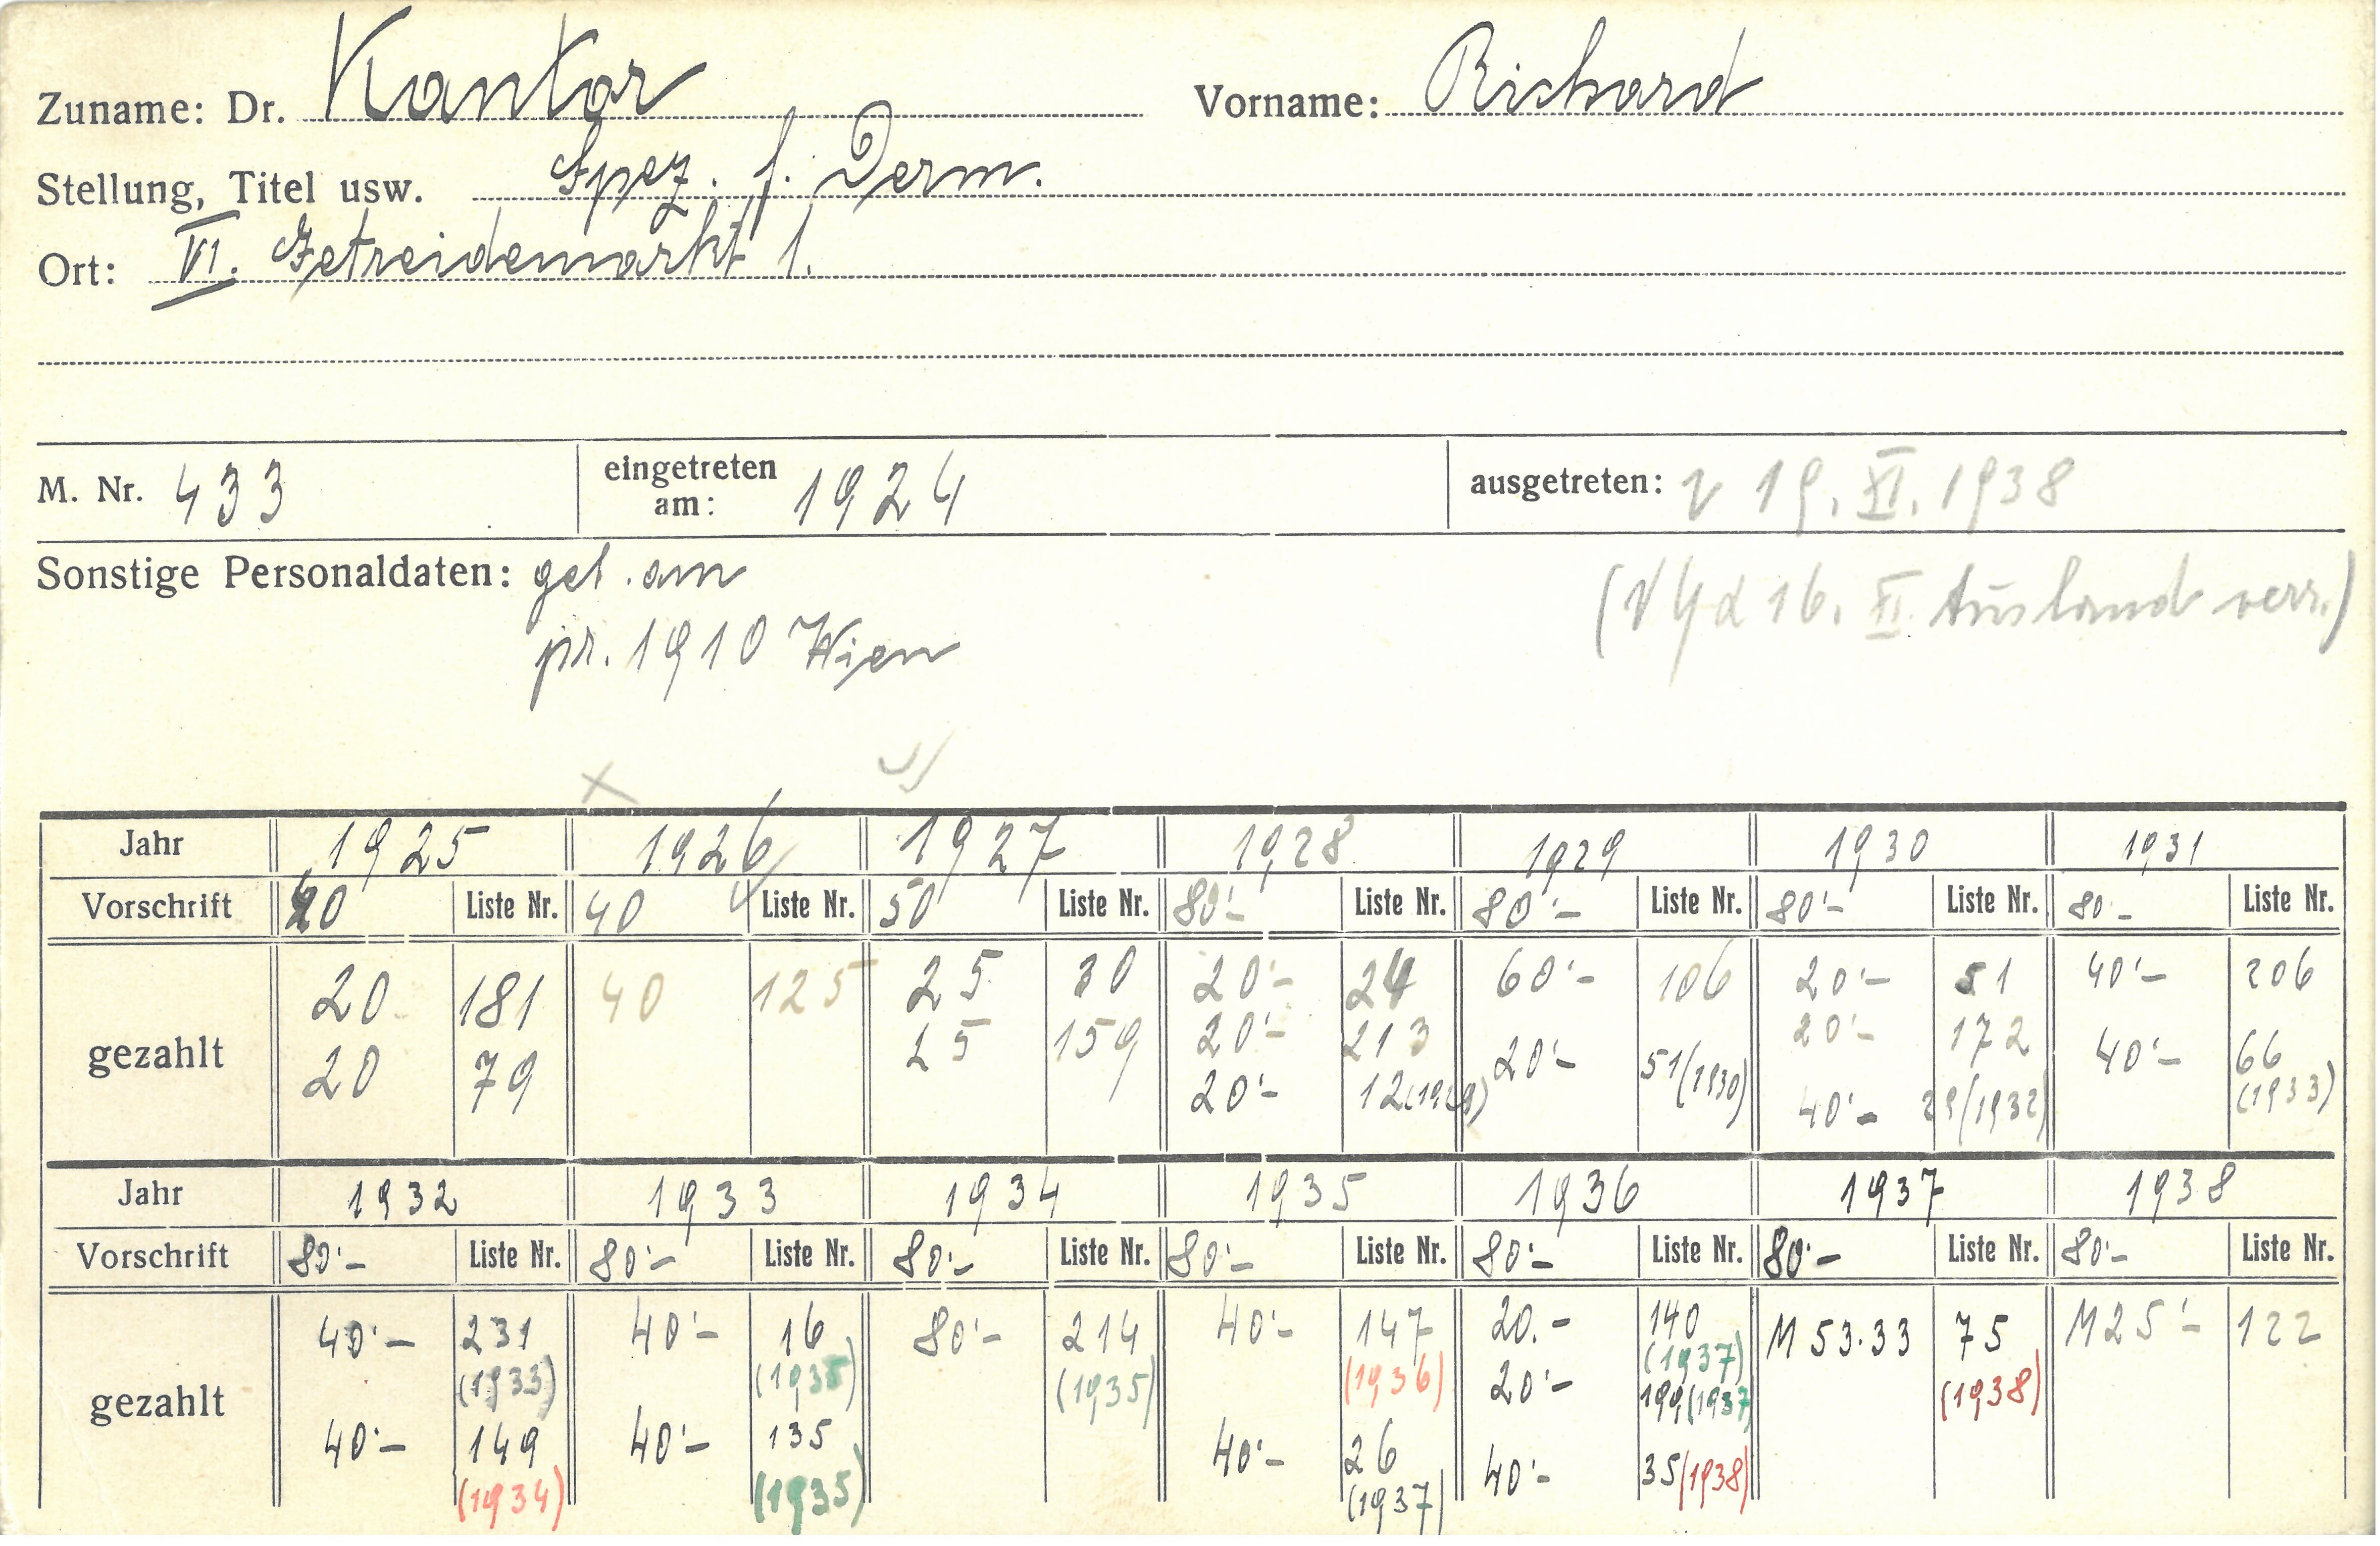 Zuname: Dr. Kantor Vorname: Richard
Stellung, Titel usw. Spez. f. Derm.
Ort: VI. Getreidemarkt 1.
M. Nr. 433 eingetreten am: 1924 ausgetreten: 19. XI. 1938
Sonstige Personaldaten: geb. am (16. XI. Ausland verr.)
pr. 1910 Wien
Jahr 1925 1926 1927 1928 1929 1930 1931
Vorschrift Liste Nr. 40 Liste Nr. 50 Liste Nr. 80'- Liste Nr. 80'- Liste Nr. 80'- Liste Nr. 80.- Liste Nr.
gezahlt
20 181 40 125 25 30 20'- 24 60'- 106 20'- 51 40'- 206
20 79 25 159 20'- 213 20'- 51 (1930) 20'- 172 40'- 66 (1933)
20'- 12 40'- 29 (1932)
Jahr 1932 1933 1934 1935 1936 1937 1938
Vorschrift 80'- Liste Nr. 80'- Liste Nr. 80'- Liste Nr. 80'- Liste Nr. 80'- Liste Nr. 80'- Liste Nr. 80'- Liste Nr.
gezahlt
40'- 231 40'- 16 80'- 214 40'- 147 20.- 140 M 53.33 75 M 25'- 122
(1933) (1935) (1935) (1936) (1937) (1938)
20'- 199 (1937
40'- 149 40'- 135 40'- 26 40'- 35 (1938)
(1934) (1935) (1937)